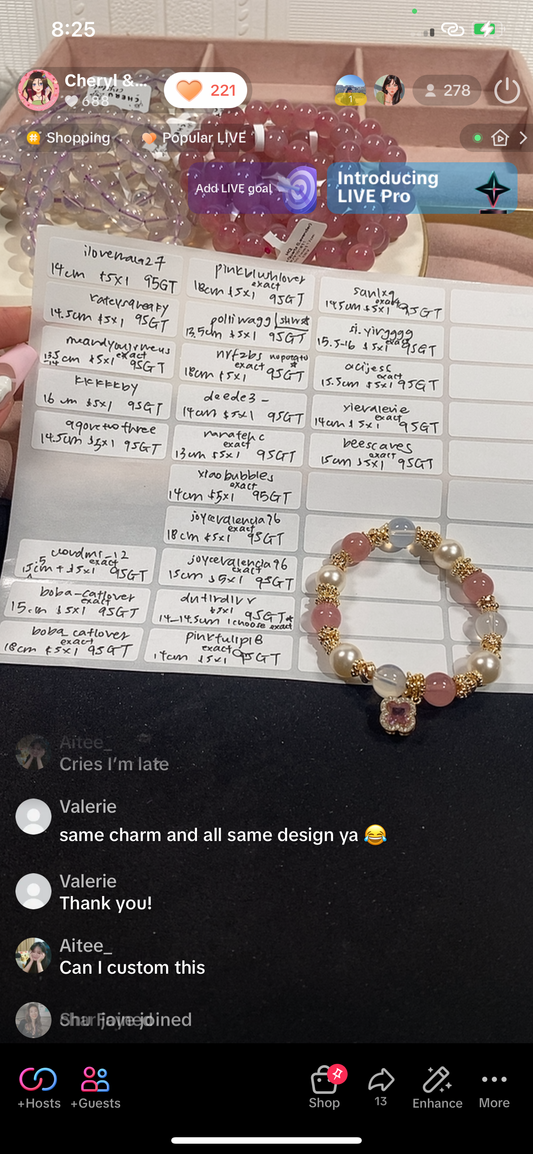 8:25
Cheryl &...
688
221
1
278
Shopping
Popular LIVE
Add LIVE goal
Introducing
LIVE Pro
14cm $5x1 95GT
14.5cm $5x1 95GT
exact
13.5cm $5x1 95GT
-14
kkkkkby
16cm $5x1 95GT
14.5cm $5x1 95GT
exact
15cm + $5x1 95GT
boba-catlover
exact
15cm $5x1 95GT
boba_catlover
exact
18cm $5x1 95GT
pinkblushlover
exact
18cm $5x1 95GT
13.5cm $5x1 95GT
exact
18cm $5x1 95GT
deede3-
14cm $5x1 95GT
exact
13cm $5x1 95GT
xiaobubbles
exact
14cm $5x1 95GT
joycevalencia96
exact
18cm $5x1 95GT
joycevalencia96
exact
15cm $5x1 95GT
$5x1 95GT
14-14.5cm I choose exact
pinktulip18
exact
14cm $5x1 95GT
exact
14.5cm $5x1 95GT
si.yingggg
15.5-16 $5x1 exact 95GT
exact
15.5cm $5x1 95GT
xievalerie
exact
14cm $5x1 95GT
beescaves
exact
15cm $5x1 95GT
Aitee_
Cries I'm late
Valerie
same charm and all same design ya 😂
Valerie
Thank you!
Aitee_
Can I custom this
joined
+Hosts
+Guests
Shop
13
Enhance
More